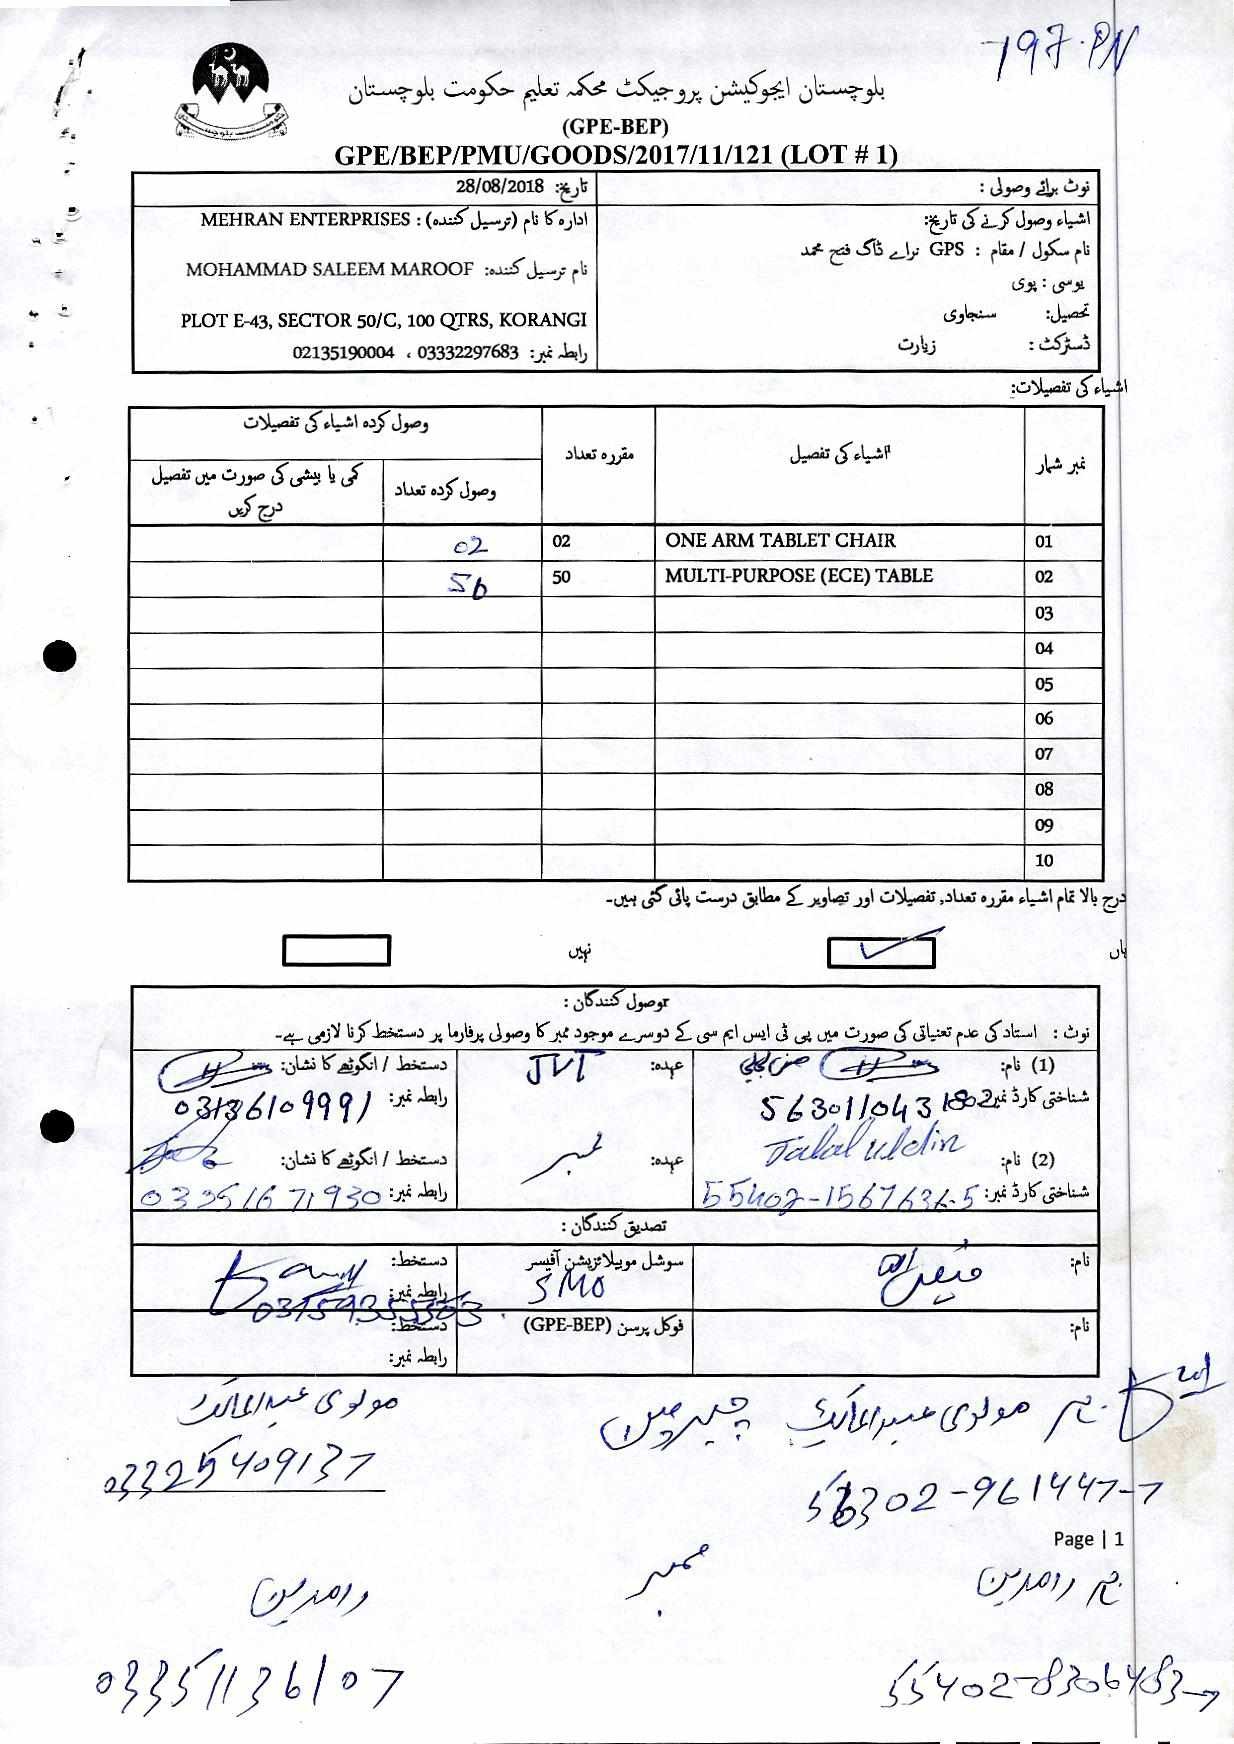 197-PN
بلوچستان ایجوکیشن پروجیکٹ محکمہ تعلیم حکومت بلوچستان
(GPE-BEP)
GPE/BEP/PMU/GOODS/2017/11/121 (LOT # 1)
نوٹ برائے وصولی :
اشیاء وصول کرنے کی تاریخ:
نام سکول / مقام : GPS نرائے ڈاگ فتح محمد
یوسی : پوی
تحصیل: سنجاوی
ڈسٹرکٹ : زیارت
تاریخ: 28/08/2018
ادارہ کا نام (ترسیل کنندہ) : MEHRAN ENTERPRISES
نام ترسیل کنندہ: MOHAMMAD SALEEM MAROOF
PLOT E-43, SECTOR 50/C, 100 QTRS, KORANGI
رابطہ نمبر: 03332297683 ، 02135190004
اشیاء کی تفصیلات:
نمبر شمار اشیاء کی تفصیل مقررہ تعداد وصول کردہ اشیاء کی تفصیلات
وصول کردہ تعداد کمی یا بیشی کی صورت میں تفصیل درج کریں
01 ONE ARM TABLET CHAIR 02 02
02 MULTI-PURPOSE (ECE) TABLE 50 50
03
04
05
06
07
08
09
10
درج بالا تمام اشیاء مقررہ تعداد, تفصیلات اور تصاویر کے مطابق درست پائی گئی ہیں۔
ہاں نہیں
وصول کنندگان :
نوٹ : استاد کی عدم تعنیاتی کی صورت میں پی ٹی ایس ایم سی کے دوسرے موجود ممبر کا وصولی پرفارما پر دستخط کرنا لازمی ہے۔
(1) نام: عہدہ: JVT دستخط / انگوٹھے کا نشان:
شناختی کارڈ نمبر: 5630110431802 رابطہ نمبر: 03136109991
(2) نام: Jalaluddin عہدہ: ممبر دستخط / انگوٹھے کا نشان:
شناختی کارڈ نمبر: 55402-1567636-5 رابطہ نمبر: 03351671930
تصدیق کنندگان :
نام: سوشل موبیلائزیشن آفیسر SMO دستخط:
رابطہ نمبر: 03159355563
نام: فوکل پرسن (GPE-BEP) دستخط:
رابطہ نمبر:
نام مولوی عبدالمالک چیرمین مولوی عبدالمالک
56302-961447-7 03325409137
Page | 1
نام رامدین ممبر رامدین
55402-8306483-7 03351136107